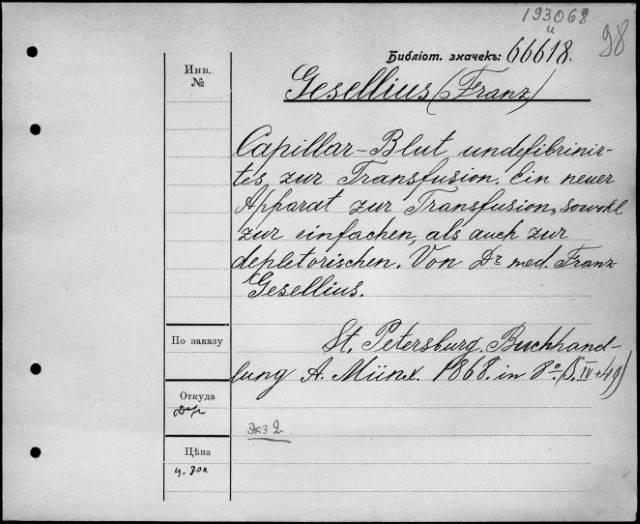 193068
и
Библіот. значекъ: 66618.
98
Инв.
№
Gesellius (Franz)
Capillar-Blut undefibrinir-
tes, zur Transfusion. Ein neuer
Apparat zur Transfusion, sowohl
zur einfachen, als auch zur
depletorischen. Von Dr med. Franz
Gesellius.
По заказу
St. Petersburg, Buchhand-
lung A. Münx. 1868. in 8o. (S. IV + 49)
Откуда
экз 2
Цѣна